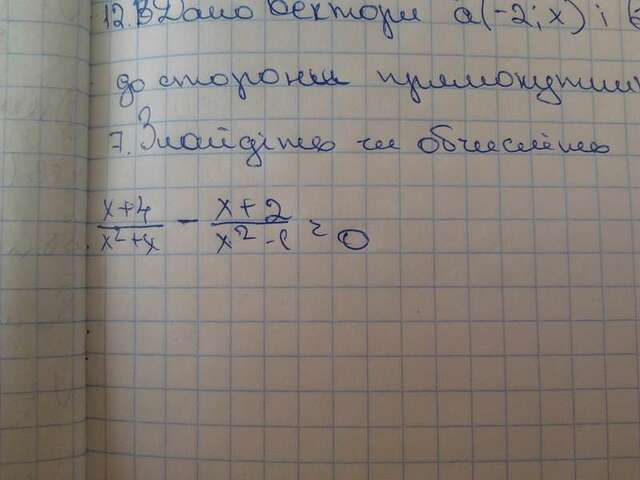 12. В Дано вектори a(-2; x) і (
до сторони прямокутник
7. Знайдіть чи обчисліть
x+4/x²+x - x+2/x²-1 = 0